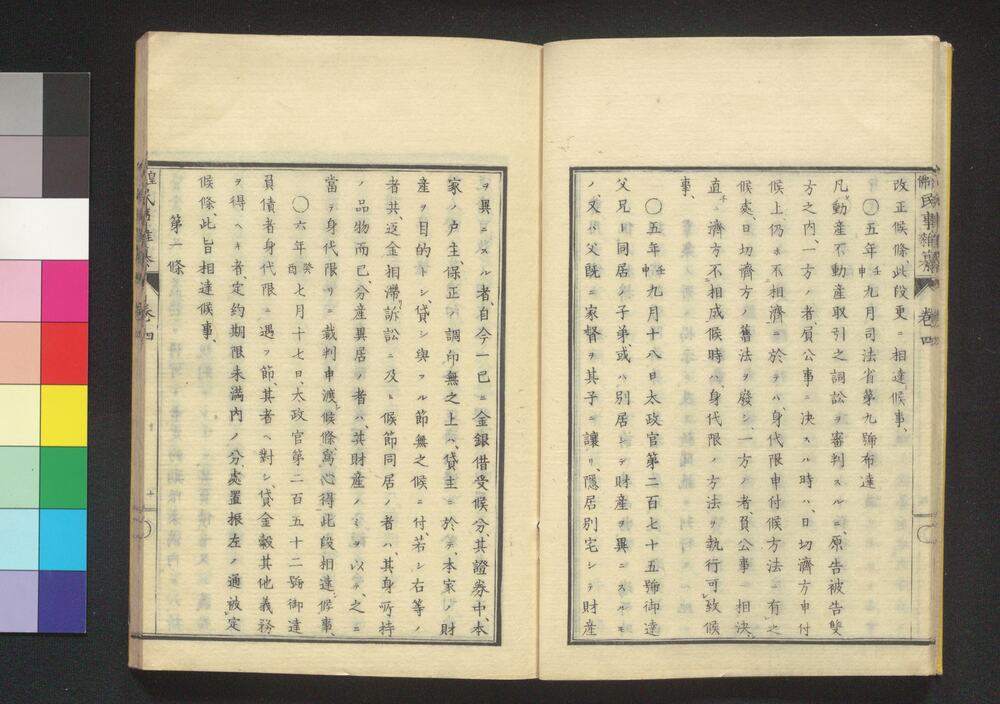 改正候條、此段更ニ相達候事、
〇五年壬申九月司法省第九號布達
凡動産不動産取引之詞訟ヲ審判スルニ、原告被告雙
方之内、一方ノ者、負公事ニ決スル時ハ、日切濟方申付
候上、仍ホ不相濟ニ於テハ、身代限申付候方法ニ有之
候處、日切濟方ノ舊法ヲ廢シ、一方ノ者、負公事ニ相決、
直チ濟方不相成候時ハ、身代限ノ方法ヲ執行可致候
事、
〇五年壬申九月十八日太政官第二百七十五號御達
父兄ト同居ノ子弟、或ハ別居シテ財産ヲ異ニスルモ
ノ、又ハ父既ニ家督ヲ其子ニ讓リ、隱居別宅シテ財産
民事
卷四
ヲ異ニスル者、自今一己ニ金銀借受候分、其證券中、本
家ノ戸主、保正ノ調印無之上ハ、貸主ニ於テ、本家ノ財
産ヲ目的トシ、貸シ與フル節無之候ニ付、若シ右等ノ
者共、返金相滯訴訟ニ及ヒ候節同居ノ者ハ、其身所持
ノ品物而已、分産異居ノ者ハ、其財産ノミヲ以テ、之ニ
當テ身代限リニ裁判申渡候條、爲心得此段相達候事、
〇六年癸酉七月十七日、太政官第二百五十二號御達
負債者身代限ニ遇フ節、其者ヘ對シ、貸金穀其他義務
ヲ得ヘキ者、定約期限未満内ノ分、處置振左ノ通被定
候條、此旨相達候事、
第一條
卷四